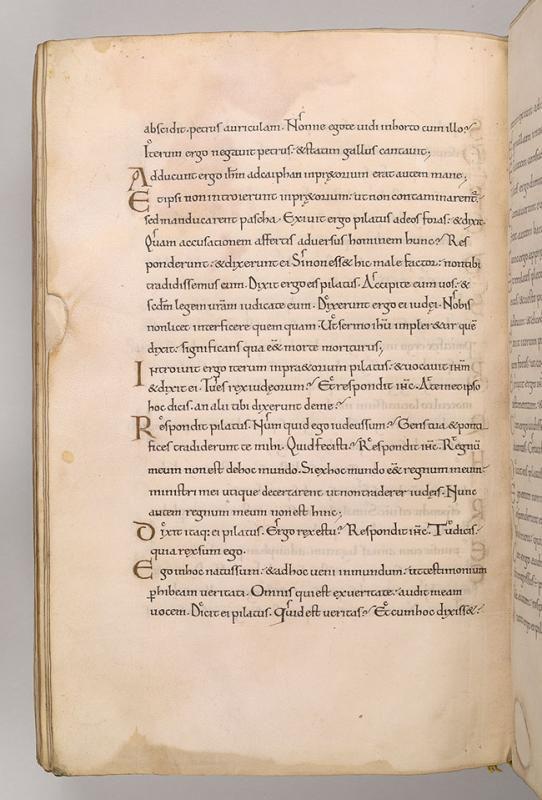 abscidit· petrus auriculam· Nonne ego te uidi in horto cum illo?
Iterum ergo negauit petrus· & statim gallus cantauit;
Adducunt ergo ihm ad caiphan in pr&orium· erat autem mane;
Et ipsi non introierunt in pr&orium· ut non contaminarent̃·
sed manducarent pascha· Exiuit ergo pilatus ad eos foras· & dixit·
Quam accusationem affertis aduersus hominem hunc? Res
ponderunt· & dixerunt ei Si non ess& hic malefactor· non tibi
tradidissemus eum· Dixit ergo eis pilatus· Accipite eum uos· &
scdm legem uram iudicate eum· Dixerunt ergo ei iudei· Nobis
non licet interficere quem quam· Ut sermo ihu impler&ur quẽ
dixit· significans qua ee& morte moriturus;
Introiuit ergo iterum in pr&orium pilatus· & uocauit ihm
& dixit ei· Tu es rex iudeorum? Et respondit ihc· A temet ipso
hoc dicis· an alii tibi dixerunt de me?
Respondit pilatus· Num quid ego iudeus sum? Gens tua & ponti
fices tradiderunt te mihi· Quid fecisti? Respondit ihc· Regnũ
meum non est de hoc mundo· Si ex hoc mundo ee& regnum meum·
ministri mei utique decertarent ut non traderer iudeis· Nunc
autem regnum meum non est hinc;
Dixit itaq; ei pilatus· Ergo rex es tu? Respondit ihc· Tu dicis·
quia rex sum ego·
Ego in hoc natus sum· & ad hoc ueni in mundum· ut testimonium
phibeam ueritati· Omnis qui est ex ueritate· audit meam
uocem· Dicit ei pilatus· Quid est ueritas? Et cum hoc dixiss&·